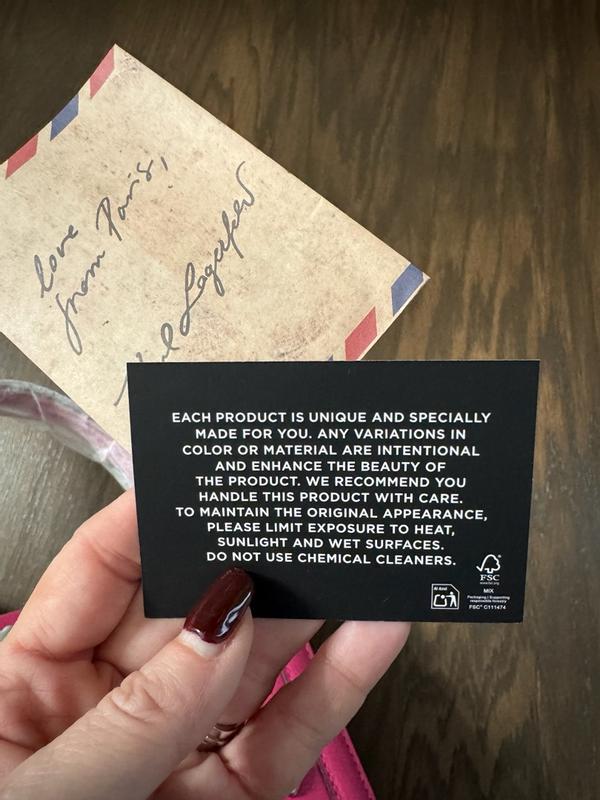 love
from Paris,
Karl Lagerfeld
EACH PRODUCT IS UNIQUE AND SPECIALLY
MADE FOR YOU. ANY VARIATIONS IN
COLOR OR MATERIAL ARE INTENTIONAL
AND ENHANCE THE BEAUTY OF
THE PRODUCT. WE RECOMMEND YOU
HANDLE THIS PRODUCT WITH CARE.
TO MAINTAIN THE ORIGINAL APPEARANCE,
PLEASE LIMIT EXPOSURE TO HEAT,
SUNLIGHT AND WET SURFACES.
DO NOT USE CHEMICAL CLEANERS.
FSC
www.fsc.org
MIX
Packaging | Supporting
responsible forestry
FSC® C111474